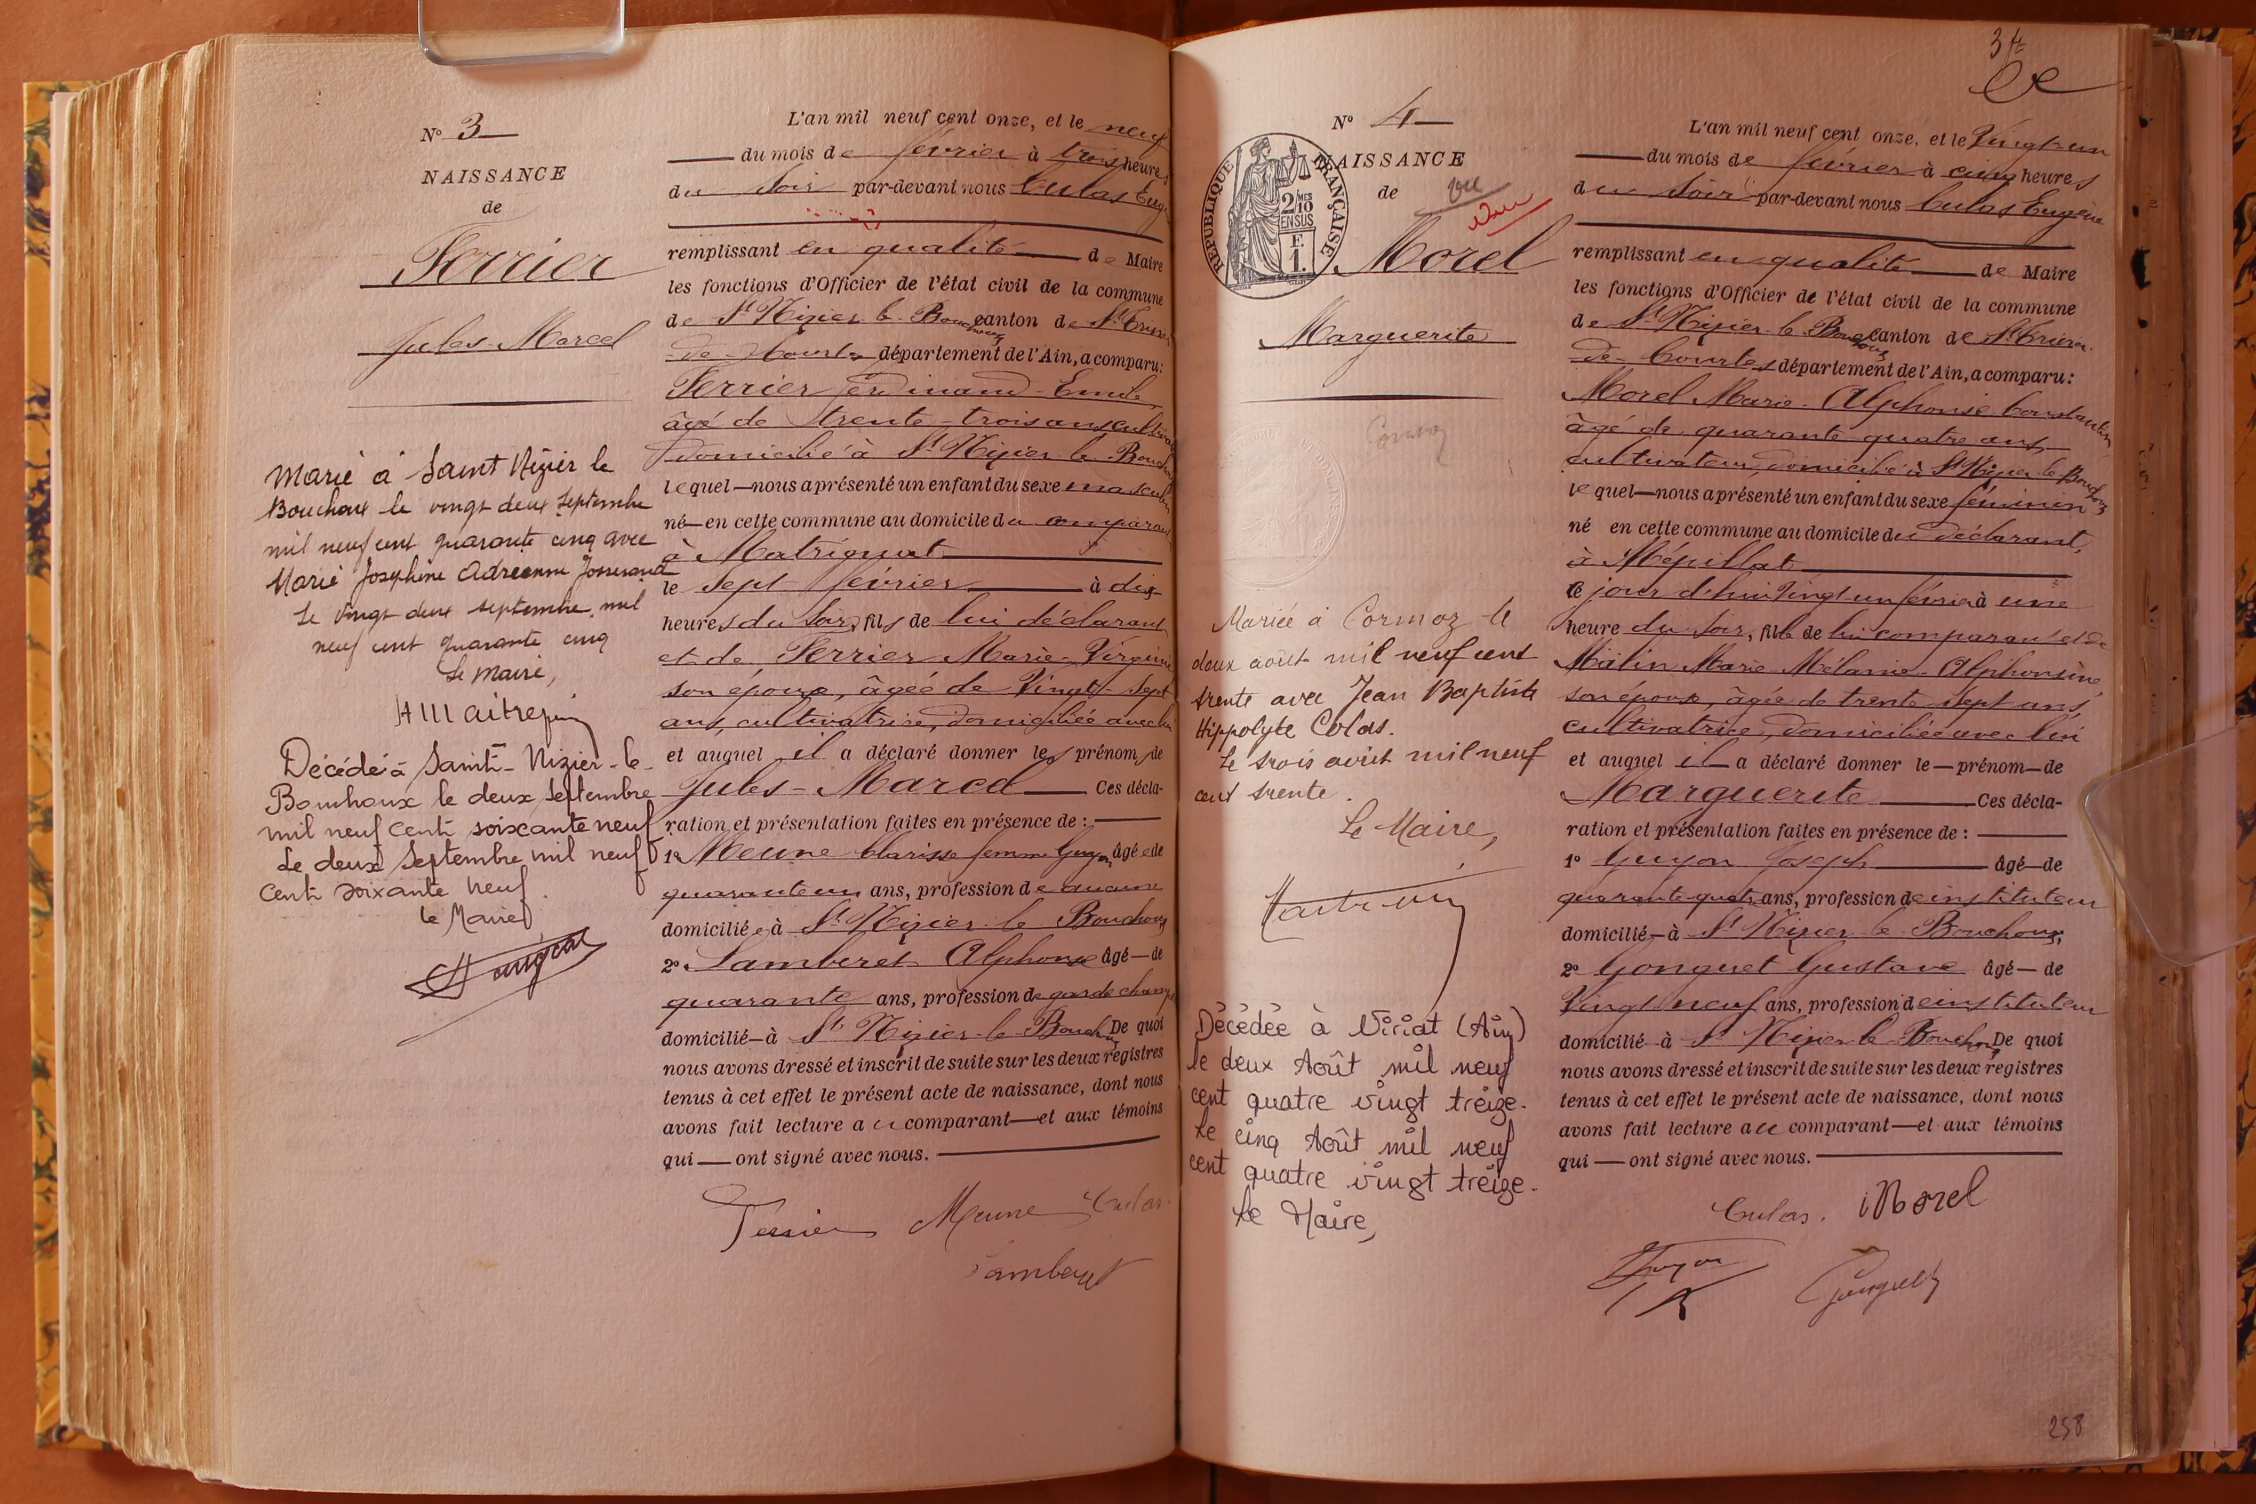 N° 3
NAISSANCE
de
Ferrier
Jules-Marcel
Marié à Saint Nizier le
Bouchoux le vingt deux septembre
mil neuf cent quarante cinq avec
Marie Joséphine Adrienne Josserand
Le vingt deux septembre mil
neuf cent quarante cinq
Le Maire,
Décédé à Saint-Nizier-le-
Bouchoux le deux septembre
mil neuf cent soixante neuf
Le deux Septembre mil neuf
cent soixante neuf.
le Maire
L'an mil neuf cent onze, et le neuf
du mois de février à trois heures
du soir par-devant nous Culas Eug
remplissant en qualité de Maire
les fonctions d'Officier de l'état civil de la commune
de St Nizier le Bouchoux canton de St Trivier
de Courtes département de l'Ain, a comparu:
Ferrier Ferdinand-Emile,
âgé de trente-trois ans cultivateur
domicilié à St Nizier le Bouchoux
lequel nous a présenté un enfant du sexe masculin
né en cette commune au domicile du comparant
à Matrignat
le sept février à dix
heures du soir, fils de lui déclarant
et de Ferrier Marie-Virginie
son épouse, âgée de Vingt-sept
ans, cultivatrice, domiciliée avec lui
et auquel il a déclaré donner les prénoms de
Jules-Marcel Ces décla-
ration et présentation faites en présence de :
1° Meune Clarisse femme Guyon âgée de
quarante un ans, profession de aucune
domiciliée à St Nizier le Bouchoux
2° Lamberet Alphonse âgé de
quarante ans, profession de garde champ
domicilié à St Nizier-le-Bouchoux De quoi
nous avons dressé et inscrit de suite sur les deux registres
tenus à cet effet le présent acte de naissance, dont nous
avons fait lecture au comparant et aux témoins
qui ont signé avec nous.
Ferrier Meune Culas
Lamberet
N° 4
NAISSANCE
de
Vu
RÉPUBLIQUE FRANÇAISE
2 MES
10
EN SUS
E.
1.
Morel
Marguerite
Cormoz
Mariée à Cormoz le
deux août mil neuf cent
trente avec Jean Baptiste
Hippolyte Colas.
Le trois août mil neuf
cent trente.
Le Maire,
Décédée à Viriat (Ain)
le deux Août mil neuf
cent quatre vingt treize.
Le cinq Août mil neuf
cent quatre vingt treize.
Le Maire,
L'an mil neuf cent onze, et le Vingt-un
du mois de février à cinq heures
du soir par-devant nous Culas Eugène
remplissant en qualité de Maire
les fonctions d'Officier de l'état civil de la commune
de St Nizier le Bouchoux canton de St Trivier
de Courtes département de l'Ain, a comparu:
Morel Marie-Alphonse Constantin
âgé de quarante quatre ans,
cultivateur, domicilié à St Nizier le Bouchoux
lequel nous a présenté un enfant du sexe féminin
né en cette commune au domicile du déclarant,
à Mépillat
ce jour d'hui Vingt un février à une
heure du soir, fille de lui comparant et de
Mélin Marie Mélanie-Alphonsine
son épouse, âgée de trente sept ans,
cultivatrice, domiciliée avec lui
et auquel il a déclaré donner le prénom de
Marguerite Ces décla-
ration et présentation faites en présence de :
1° Guyon Joseph âgé de
quarante quatre ans, profession de instituteur
domicilié à St Nizier le Bouchoux,
2° Gonguet Gustave âgé de
Vingt neuf ans, profession de instituteur
domicilié à St Nizier le Bouchoux De quoi
nous avons dressé et inscrit de suite sur les deux registres
tenus à cet effet le présent acte de naissance, dont nous
avons fait lecture au comparant et aux témoins
qui ont signé avec nous.
Culas. Morel
Guyon
258